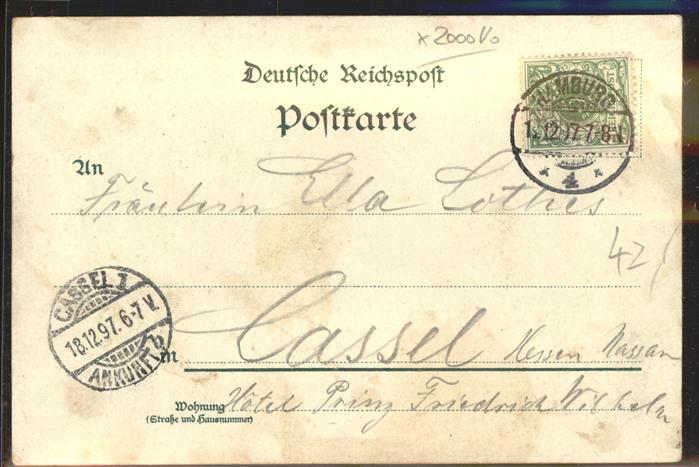 x 2000 V0
Deutsche Reichspost
Postkarte
HAMBURG
12.97. 7-8 V.
* 4 *
An
Fräulein Ella Lothes
42
CASSEL 1
18.12.97. 6-7 V.
ANKUNFT
in Cassel Hessen Nassau
Wohnung Hôtel Prinz Friedrich Wilhelm
(Straße und Hausnummer)